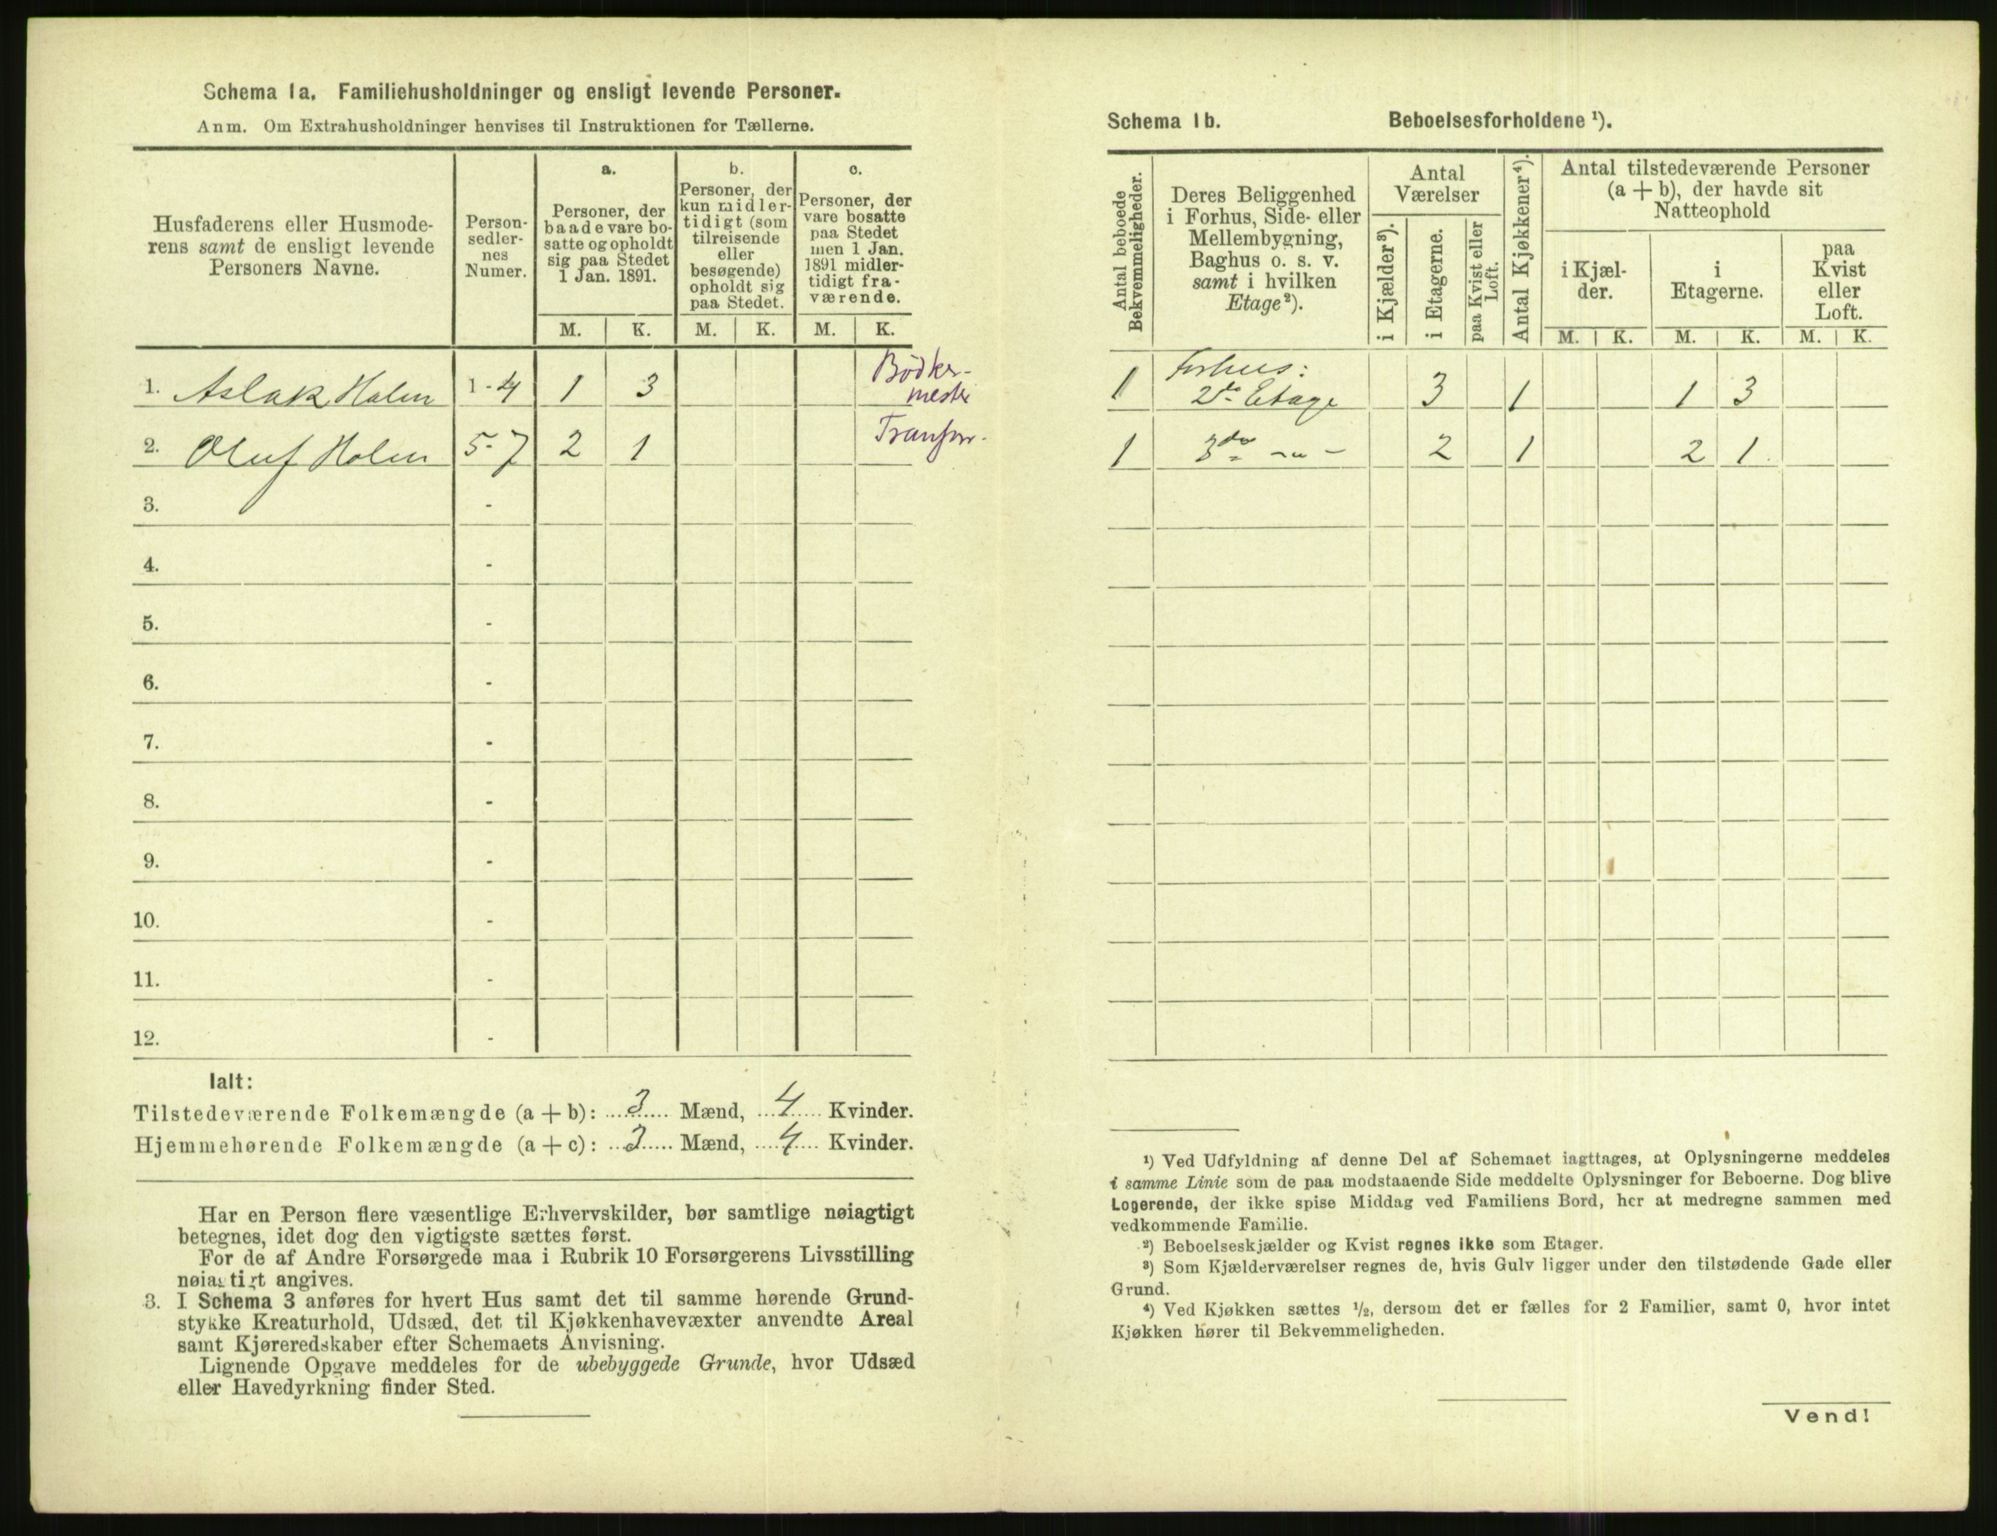 Schema 1a. Familiehusholdninger og ensligt levende Personer.
Anm. Om Extrahusholdninger henvises til Instruktionen for Tællerne.
Husfaderens eller Husmode-
rens samt de ensligt levende
Personers Navne.
Person-
sedler-
nes
Numer.
a.
Personer, der
baade vare bo-
satte og opholdt
sig paa Stedet
1 Jan. 1891.
b.
Personer, der
kun midler-
tidigt (som
tilreisende
eller
besøgende)
opholdt sig
paa Stedet.
c.
Personer, der
vare bosatte
paa Stedet
men 1 Jan.
1891 midler-
tidigt fra-
værende.
M. K. M. K. M. K.
1. Aslak Holm 1-4 1 3 Bödker-
mester
2. Oluf Holm 5-7 2 1
3. -
4. -
5. -
6. -
7. -
8. -
9. -
10. -
11. -
12. -
Ialt:
Tilstedeværende Folkemængde (a + b): 3 Mænd, 4 Kvinder.
Hjemmehørende Folkemængde (a + c): 3 Mænd, 4 Kvinder.
Har en Person flere væsentlige Erhvervskilder, bør samtlige nøiagtigt
betegnes, idet dog den vigtigste sættes først.
For de af Andre Forsørgede maa i Rubrik 10 Forsørgerens Livsstilling
nøiagtigt angives.
3. I Schema 3 anføres for hvert Hus samt det til samme hørende Grund-
stykke Kreaturhold, Udsæd, det til Kjøkkenhavevæxter anvendte Areal
samt Kjøreredskaber efter Schemaets Anvisning.
Lignende Opgave meddeles for de ubebyggede Grunde, hvor Udsæd
eller Havedyrkning finder Sted.
Schema 1b. Beboelsesforholdene ¹).
Antal beboede
Bekvemmeligheder.
Deres Beliggenhed
i Forhus, Side- eller
Mellembygning,
Baghus o. s. v.
samt i hvilken
Etage²).
Antal
Værelser
i Kjælder³).
i Etagerne.
paa Kvist eller
Loft.
Antal Kjøkkener⁴).
Antal tilstedeværende Personer
(a + b), der havde sit
Natteophold
i Kjæl-
der.
i
Etagerne.
paa
Kvist
eller
Loft.
M. K. M. K. M. K.
1 Forhus:
2de Etage 3 1 1 3
1 3de -"- 2 1 2 1
¹) Ved Udfyldning af denne Del af Schemaet iagttages, at Oplysningerne meddeles
i samme Linie som de paa modstaaende Side meddelte Oplysninger for Beboerne. Dog blive
Logerende, der ikke spise Middag ved Familiens Bord, her at medregne sammen med
vedkommende Familie.
²) Beboelseskjælder og Kvist regnes ikke som Etager.
³) Som Kjælderværelser regnes de, hvis Gulv ligger under den tilstødende Gade eller
Grund.
⁴) Ved Kjøkken sættes ½, dersom det er fælles for 2 Familier, samt 0, hvor intet
Kjøkken hører til Bekvemmeligheden.
Vend!